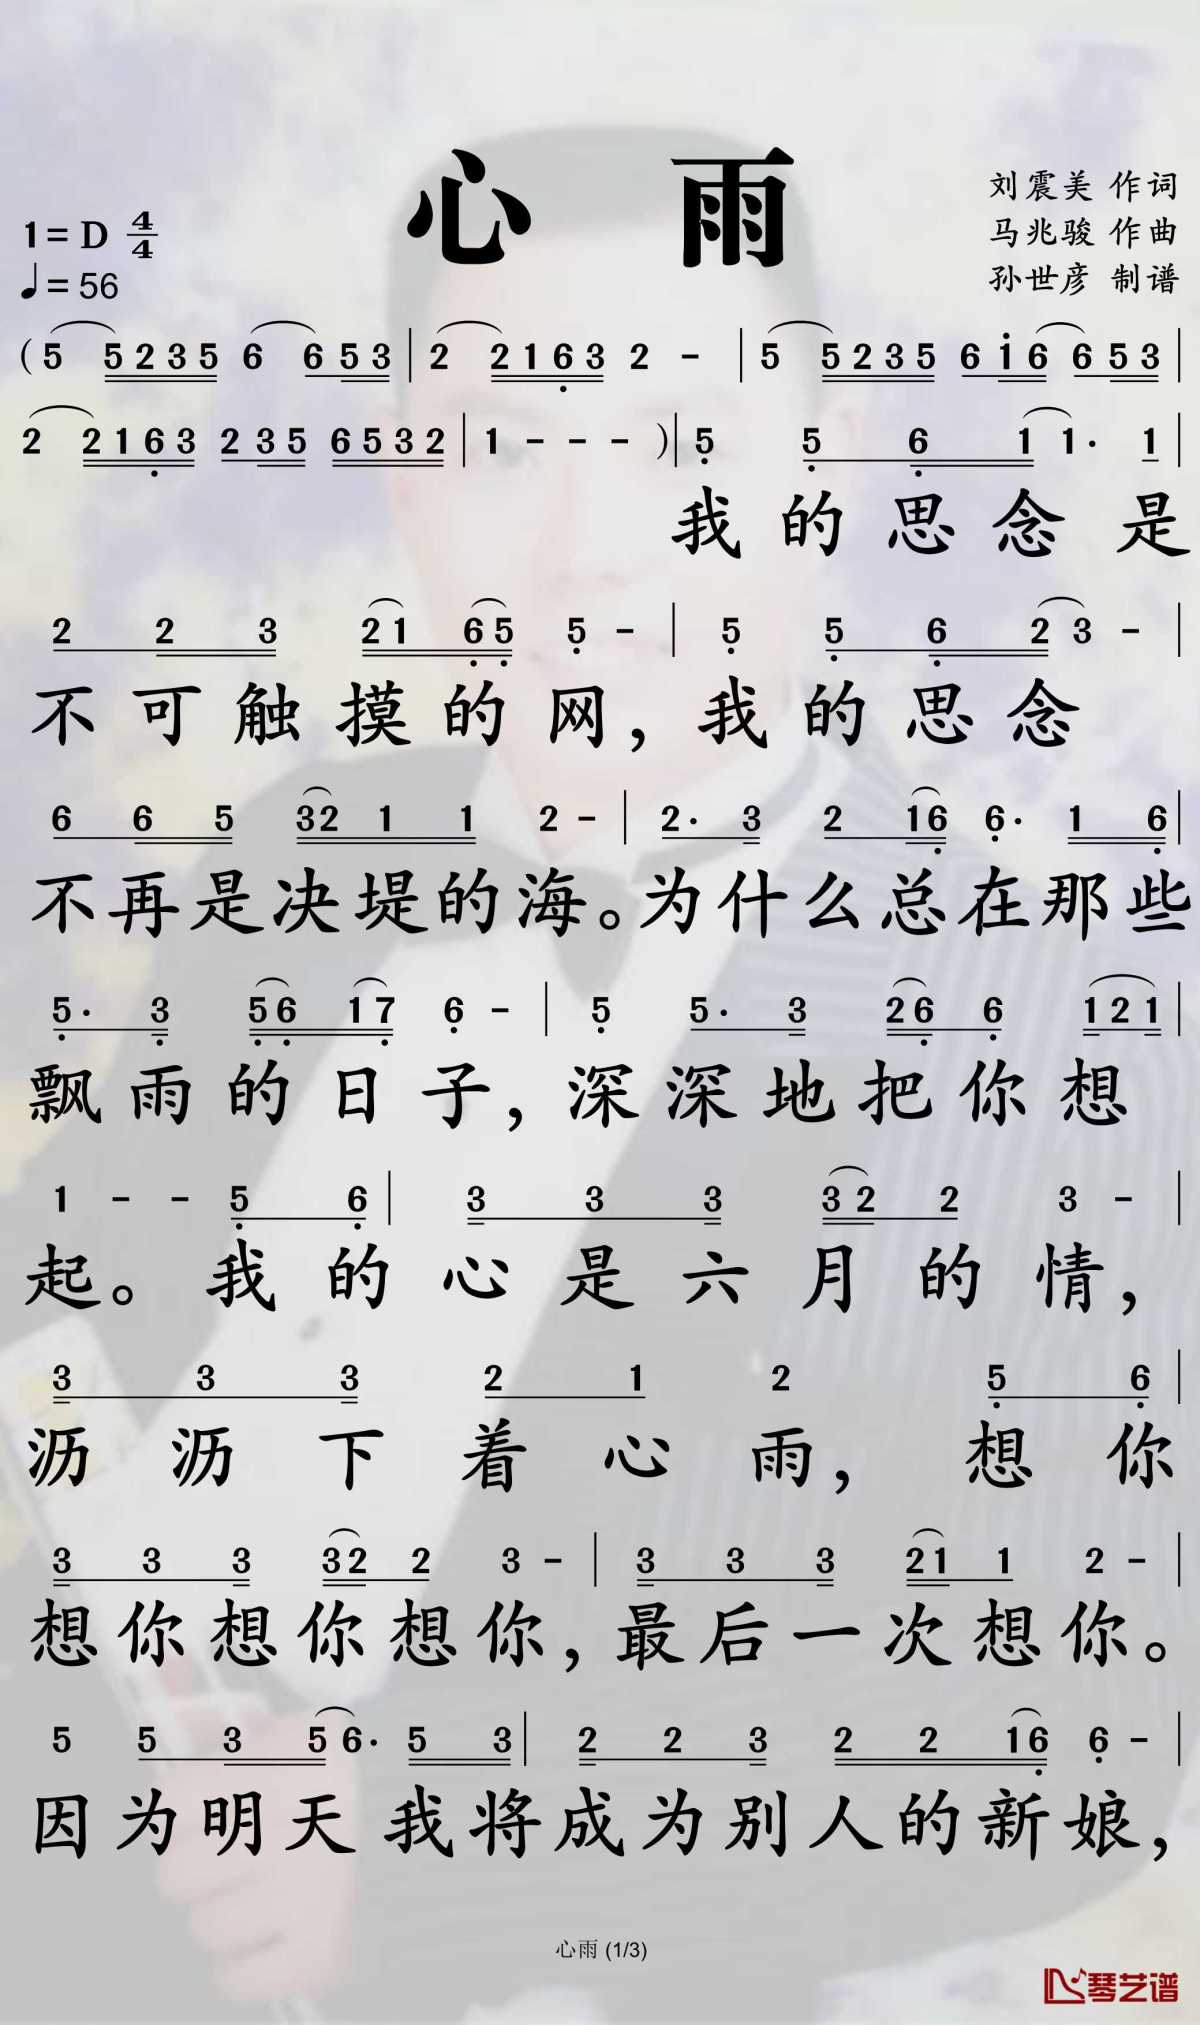 心雨
刘震美 作词
1= D 4/4
马兆骏 作曲
♩= 56
孙世彦 制谱
(5 5235 6 653 | 2 2163 2 - | 5 5235 6i6 653 |
2 2163 235 6532 | 1 - - - )| 5 5 6 1 1· 1 |
我的思念是
2 2 3 21 65 5 - | 5 5 6 2 3 - |
不可触摸的网，我的思念
6 6 5 32 1 1 2 - | 2· 3 2 16 6· 1 6 |
不再是决堤的海。为什么总在那些
5· 3 56 17 6 - | 5 5· 3 26 6 121 |
飘雨的日子，深深地把你想
1 - - 5 6 | 3 3 3 32 2 3 - |
起。我的心是六月的情，
3 3 3 2 1 2 5 6 |
沥沥下着心雨，想你
3 3 3 32 2 3 - | 3 3 3 21 1 2 - |
想你想你想你，最后一次想你。
5 5 3 5 6· 5 3 | 2 2 3 2 2 16 6 - |
因为明天我将成为别人的新娘，
心雨 (1/3)
琴艺谱